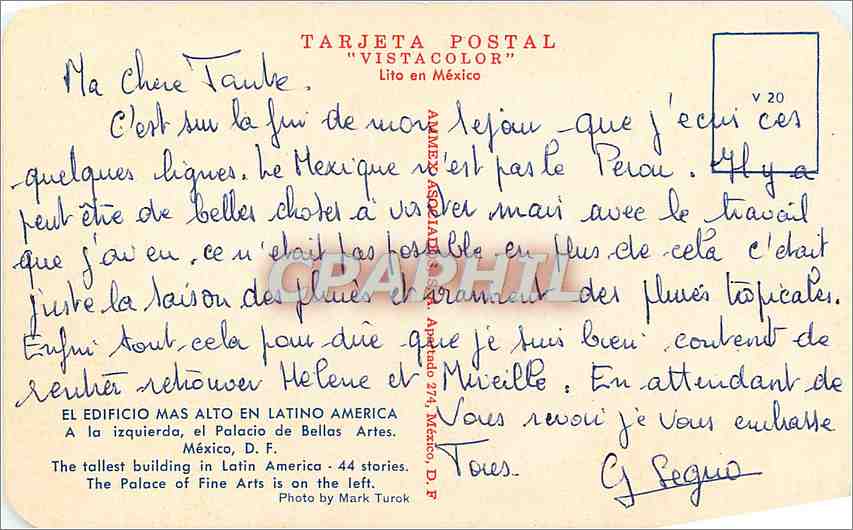 TARJETA POSTAL
"VISTACOLOR"
Lito en México
V 20
Ma Chere Tante.
C'est sur la fin de mon sejour que j'ecris ces
quelques lignes. Le Mexique n'est pas le Perou. Il y a
peut être de belles choses à visiter mais avec le travail
que j'ai eu, ce n'etait pas possible en plus de cela c'etait
juste la saison des pluies et vraiment des pluies tropicales.
Enfin tout cela pour dire que je suis bien content de
rentrer retrouver Helene et Mireille. En attendant de
Vous revoir je vous embrasse
Tous.
AMMEX ASOCIADOS, S. A. Apartado 274, México, D. F
CPAPHIL
EL EDIFICIO MAS ALTO EN LATINO AMERICA
A la izquierda, el Palacio de Bellas Artes.
México, D. F.
The tallest building in Latin America - 44 stories.
The Palace of Fine Arts is on the left.
Photo by Mark Turok